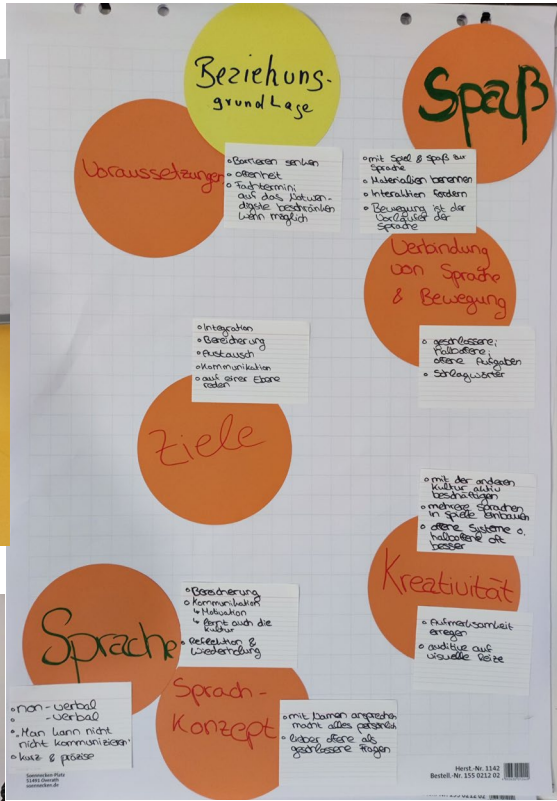 Beziehungs-
grundlage
Spaß
Voraussetzungen
Barrieren senken
offenheit
Fachtermini
auf das Notwen-
digste beschränken
wenn möglich
mit Spiel & Spaß zur
Sprache
Materialien benennen
Interaktion fördern
Bewegung ist der
Vorläufer der
Sprache
Verbindung
von Sprache
& Bewegung
geschlossene;
halboffene;
offene Aufgaben
Schlagwörter
Integration
Bereicherung
Austausch
Kommunikation
auf einer Ebene
reden
Ziele
mit der anderen
Kultur aktiv
beschäftigen
mehrere Sprachen
in Spiele einbauen
offene Systeme o.
halboffene oft
besser
Kreativität
Aufmerksamkeit
erregen
auditive auf
visuelle Reize
Bereicherung
Kommunikation
↳ Motivation
↳ lernt auch die
Kultur
Reflektion &
Wiederholung
Sprache
non-verbal
-verbal
"Man kann nicht
nicht kommunizieren"
kurz & präzise
Sprach-
Konzept
mit Namen ansprechen
macht alles persönlich
lieber offene als
geschlossene Fragen
Soennecken-Platz
51491 Overath
soennecken.de
Herst.-Nr. 1142
Bestell.-Nr. 155 0212 02